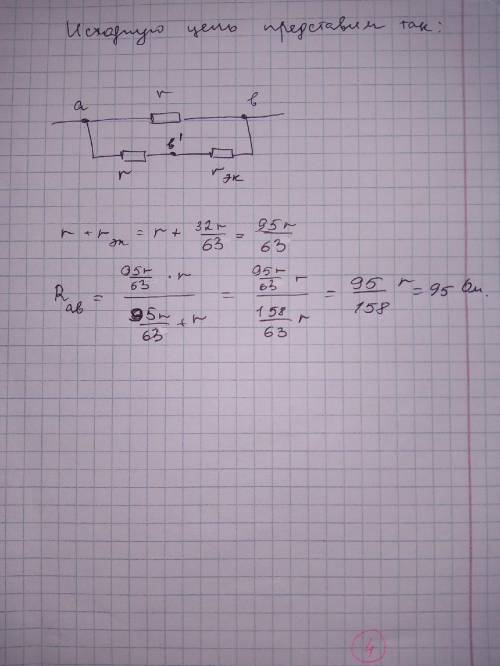 Исходную цепь представим так:
a r в
r в' rэк
r + rэк = r + 32r/63 = 95r/63
Rав = (95r/63 · r)/(95r/63 + r) = (95r/63 r)/(158/63 r) = 95/158 r = 95 Ом.
4